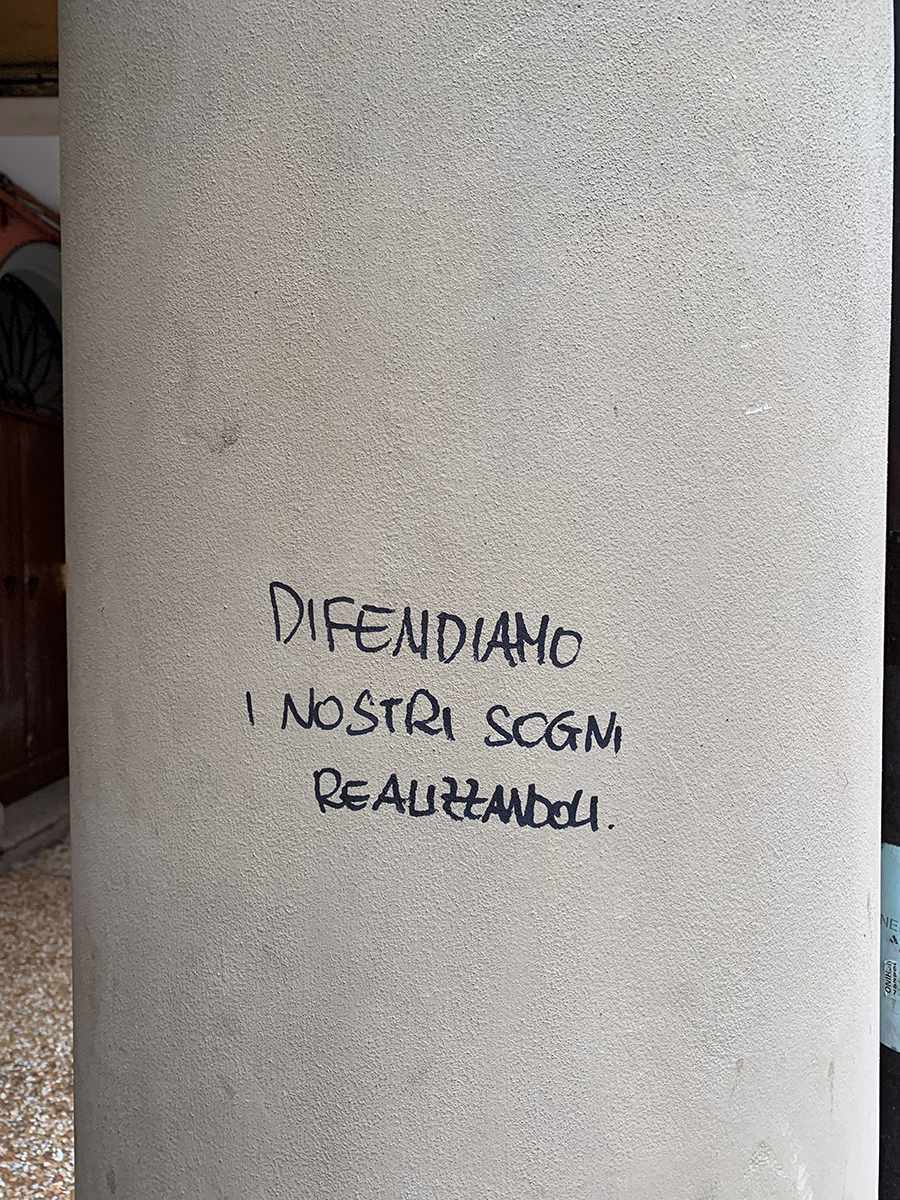 DIFENDIAMO
I NOSTRI SOGNI
REALIZZANDOLI.
NE